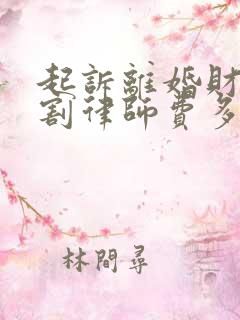 起訴離婚財
割律師費多
林間尋